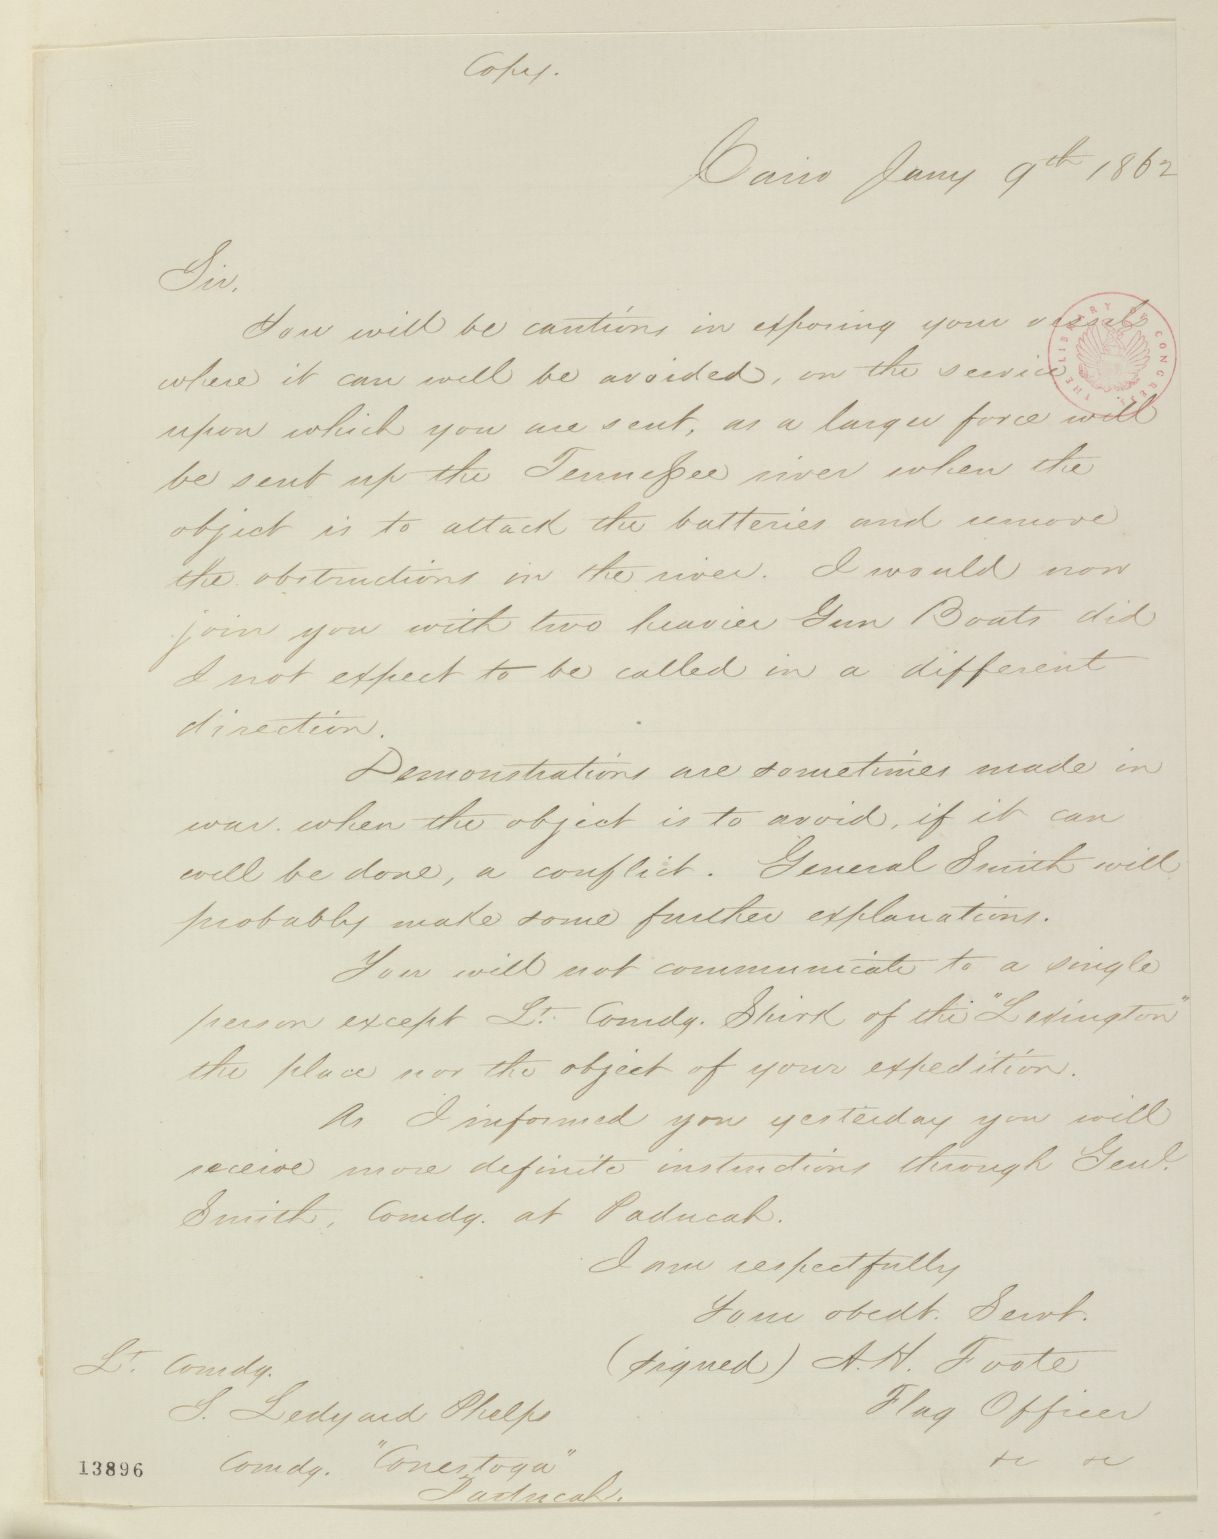 Copy.
Cairo Jany 9th 1862
Sir,
You will be cautious in exposing your vessel
where it can well be avoided, on the service
upon which you are sent, as a larger force will
be sent up the Tennessee river when the
object is to attack the batteries and remove
the obstructions in the river. I would now
join you with two heavier Gun Boats did
I not expect to be called in a different
direction.
Demonstrations are sometimes made in
war when the object is to avoid, if it can
well be done, a conflict. General Smith will
probably make some further explanations.
You will not communicate to a single
person except Lt. Comdg. Shirk of the "Lexington"
the place nor the object of your expedition.
As I informed you yesterday you will
receive more definite instructions through Genl.
Smith, Comdg. at Paducah.
I am respectfully
Your obedt. Servt.
(signed) A. H. Foote
Flag Officer
&c &c
Lt. Comdg.
S. Ledyard Phelps
Comdg. "Conestoga"
Paducah.
13896
THE LIBRARY OF CONGRESS